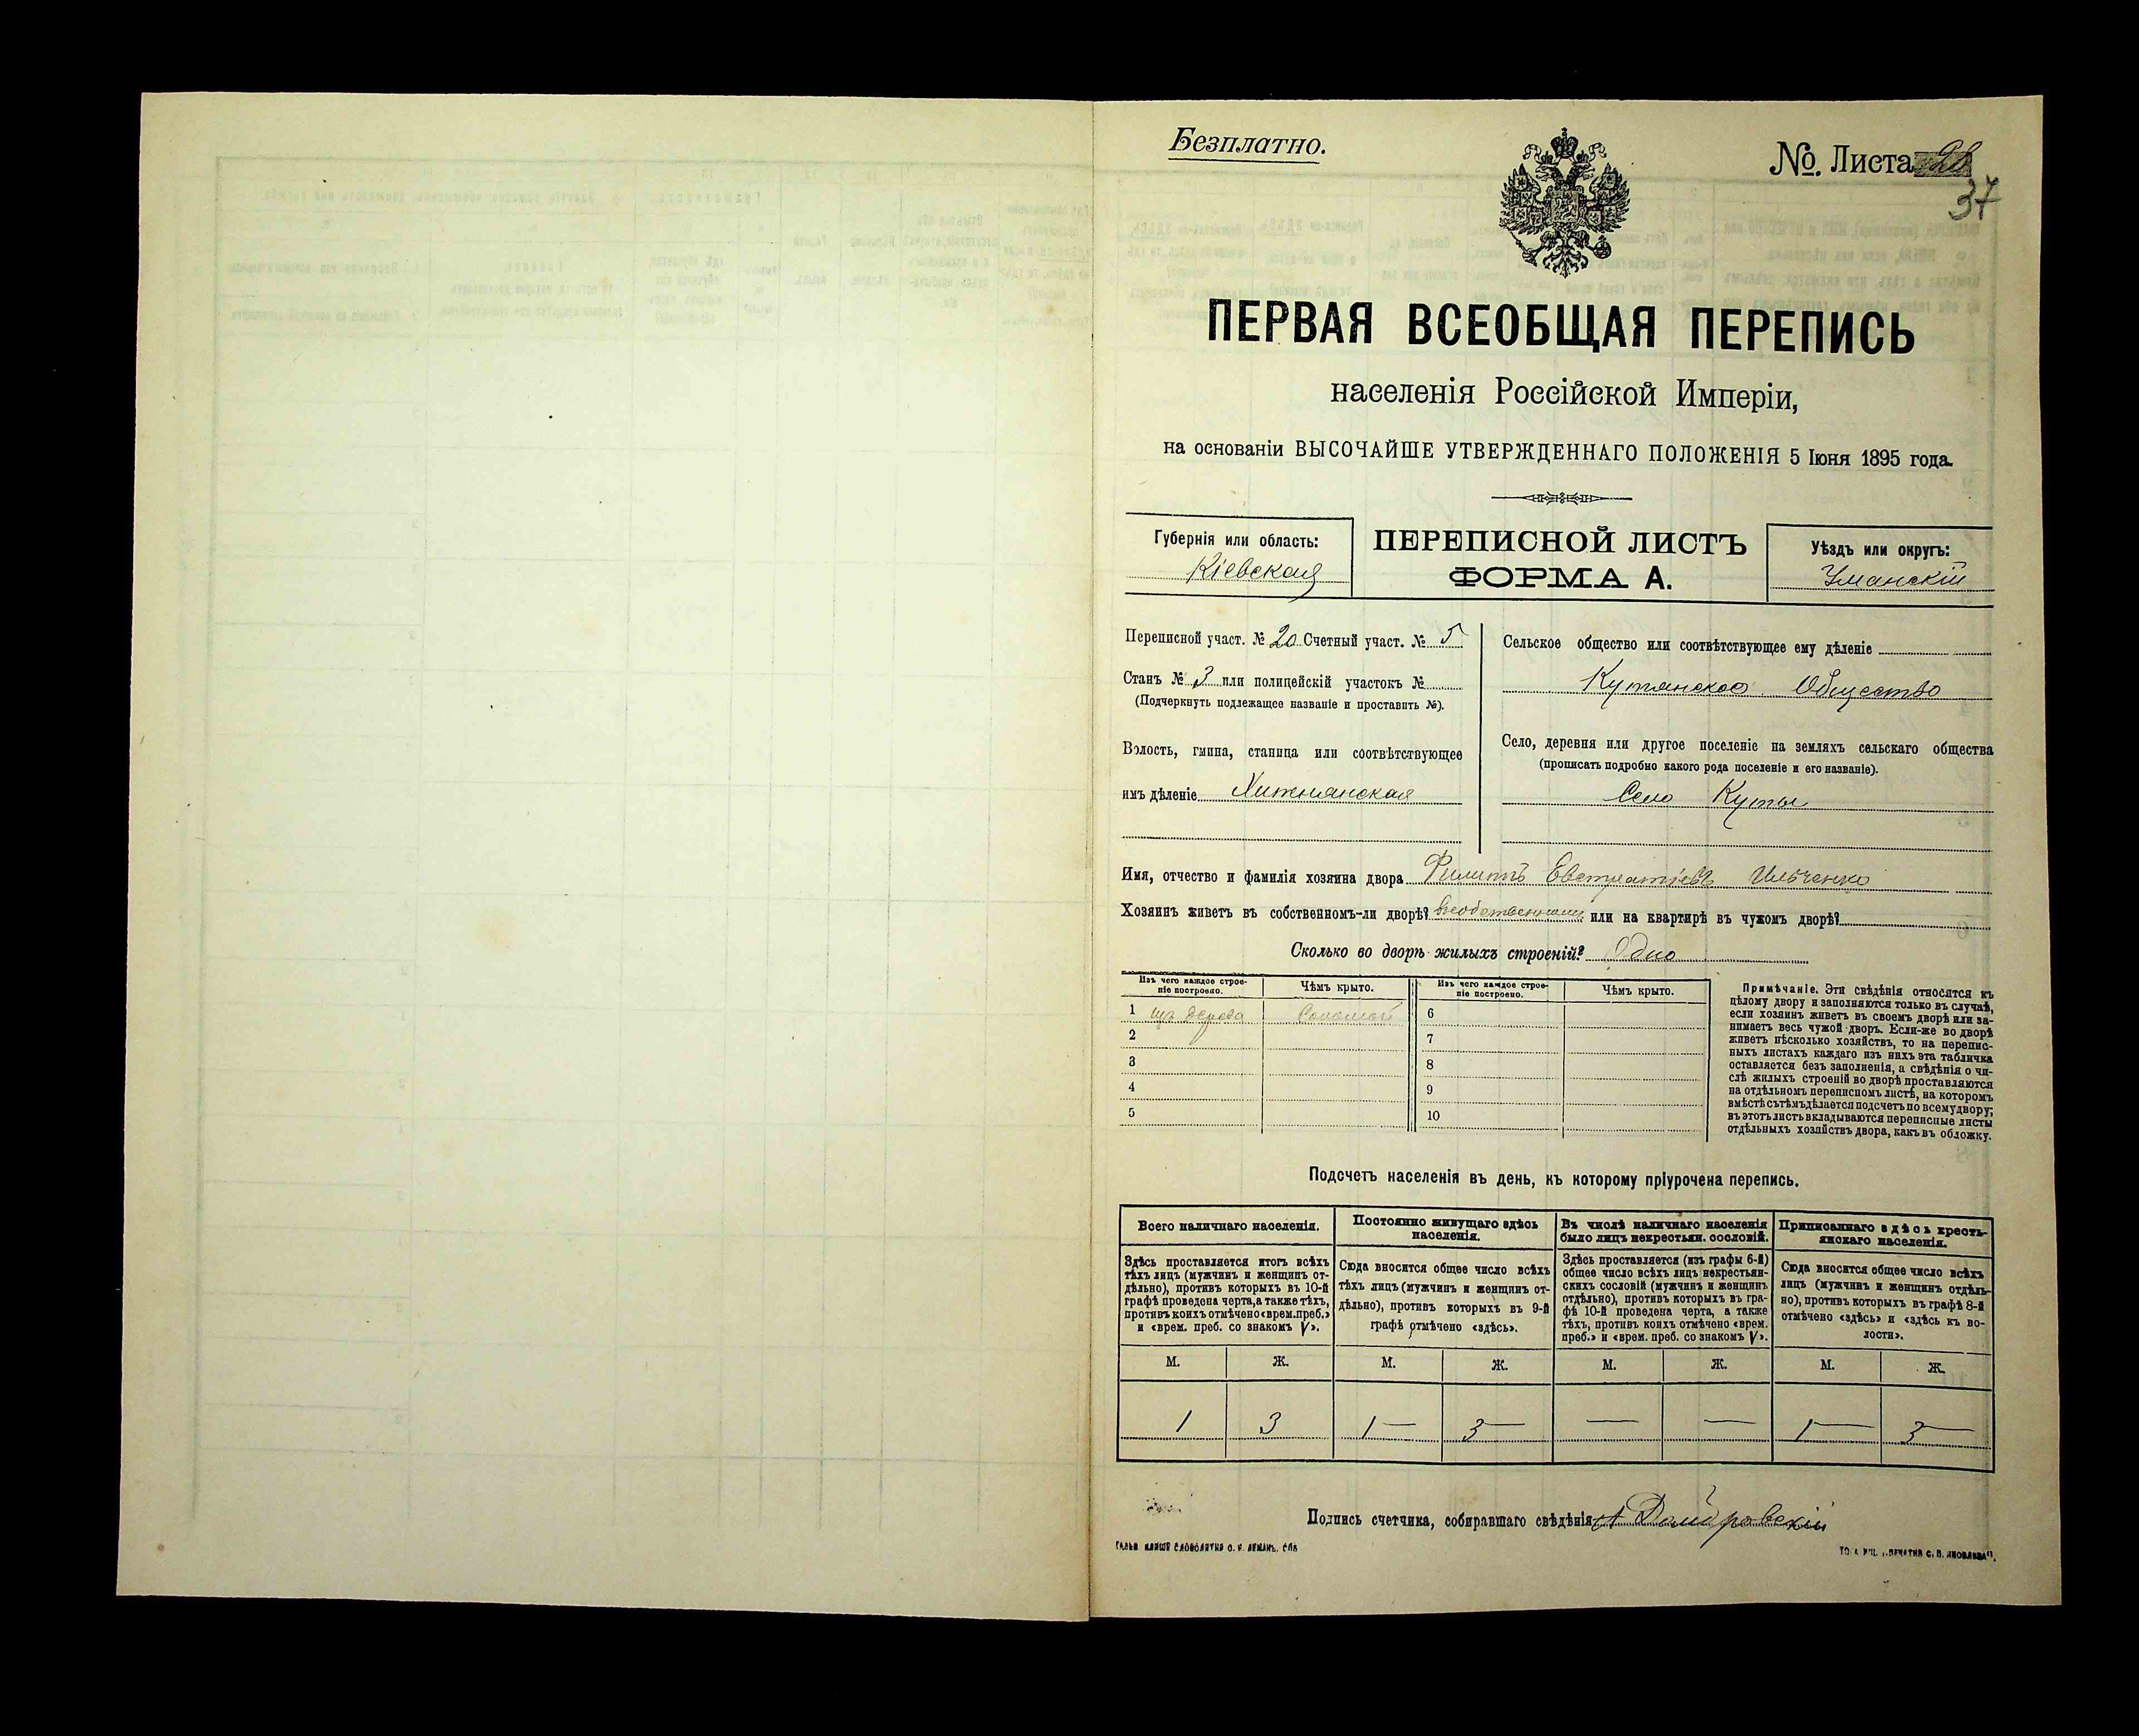 Безплатно.
№. Листа
37
ПЕРВАЯ ВСЕОБЩАЯ ПЕРЕПИСЬ
населенія Россійской Имперіи,
на основаніи ВЫСОЧАЙШЕ УТВЕРЖДЕННАГО ПОЛОЖЕНІЯ 5 Іюня 1895 года.
Губернія или область:
Кіевская
ПЕРЕПИСНОЙ ЛИСТЪ
ФОРМА А.
Уѣздъ или округъ:
Уманскій
Переписной участ. № 20 Счетный участ. № 5
Станъ № 3 или полицейскій участокъ №
(Подчеркнуть подлежащее названіе и проставить №).
Волость, гмина, станица или соотвѣтствующее
имъ дѣленіе Хижнянская
Сельское общество или соотвѣтствующее ему дѣленіе
Кутянское Общество
Село, деревня или другое поселеніе на земляхъ сельскаго общества
(прописать подробно какого рода поселеніе и его названіе).
Село Куты
Имя, отчество и фамилія хозяина двора Филиппъ Евстратіевъ Ильченко
Хозяинъ живетъ въ собственномъ-ли дворѣ? или на квартирѣ въ чужомъ дворѣ?
Сколько во дворѣ жилыхъ строеній? Одно
Изъ чего каждое строе-
ніе построено.
Чѣмъ крыто.
Изъ чего каждое строе-
ніе построено.
Чѣмъ крыто.
1 изъ дерева Соломой 6
2 7
3 8
4 9
5 10
Примѣчаніе. Эти свѣдѣнія относятся къ
цѣлому двору и заполняются только въ случаѣ,
если хозяинъ живетъ въ своемъ дворѣ или за-
нимаетъ весь чужой дворъ. Если-же во дворѣ
живетъ нѣсколько хозяйствъ, то на перепис-
ныхъ листахъ каждаго изъ нихъ эта табличка
оставляется безъ заполненія, а свѣдѣнія о чи-
слѣ жилыхъ строеній во дворѣ проставляются
на отдѣльномъ переписномъ листѣ, на которомъ
вмѣстѣ съ тѣмъ дѣлается подсчетъ по всему двору;
въ этотъ листъ вкладываются переписные листы
отдѣльныхъ хозяйствъ двора, какъ въ обложку.
Подсчетъ населенія въ день, къ которому пріурочена перепись.
Всего наличнаго населенія.
Здѣсь проставляется итогъ всѣхъ
тѣхъ лицъ (мужчинъ и женщинъ от-
дѣльно), противъ которыхъ въ 10-й
графѣ проведена черта, а также тѣхъ,
противъ коихъ отмѣчено «врем. преб.»
и «врем. преб. со знакомъ V».
Постоянно живущаго здѣсь
населенія.
Сюда вносится общее число всѣхъ
тѣхъ лицъ (мужчинъ и женщинъ от-
дѣльно), противъ которыхъ въ 9-й
графѣ отмѣчено «здѣсь».
Въ числѣ наличнаго населенія
было лицъ некрестьян. сословій.
Здѣсь проставляется (изъ графы 6-й)
общее число всѣхъ лицъ некрестьян-
скихъ сословій (мужчинъ и женщинъ
отдѣльно), противъ которыхъ въ гра-
фѣ 10-й проведена черта, а также
тѣхъ, противъ коихъ отмѣчено «врем.
преб.» и «врем. преб. со знакомъ V».
Приписаннаго здѣсь кресть-
янскаго населенія.
Сюда вносится общее число всѣхъ
лицъ (мужчинъ и женщинъ отдѣль-
но), противъ которыхъ въ графѣ 8-й
отмѣчено «здѣсь» и «здѣсь къ во-
лости».
М. Ж. М. Ж. М. Ж. М. Ж.
1 3 1— 3— — — 1— 3—
Подпись счетчика, собиравшаго свѣдѣнія